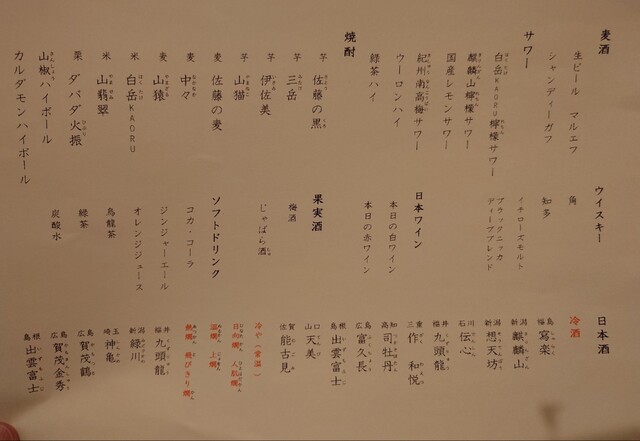 麦酒
生ビール マルエフ
シャンディーガフ
サワー
白岳KAORU檸檬サワー
麒麟山檸檬サワー
国産レモンサワー
紀州南高梅サワー
ウーロンハイ
緑茶ハイ
焼酎
芋 佐藤の黒
芋 三岳
芋 伊佐美
芋 山猫
麦 佐藤の麦
麦 中々
麦 山猿
米 白岳KAORU
米 山翡翠
栗 ダバダ火振
山椒ハイボール
カルダモンハイボール
ウイスキー
角
知多
イチローズモルト
ブラックニッカ
ディープブレンド
日本ワイン
本日の白ワイン
本日の赤ワイン
果実酒
梅酒
じゃばら酒
ソフトドリンク
コカ・コーラ
ジンジャーエール
オレンジジュース
烏龍茶
緑茶
炭酸水
日本酒
冷酒
福島 寫楽
新潟 麒麟山
新潟 想天坊
石川 伝心
福井 九頭龍
三重 作 和悦
高知 司牡丹
広島 富久長
島根 出雲富士
山口 天美
佐賀 能古見
冷や(常温)
日向燗 人肌燗
温燗 上燗
熱燗 飛びきり燗
福井 九頭龍
新潟 緑川
埼玉 神亀
広島 賀茂鶴
広島 賀茂金秀
島根 出雲富士